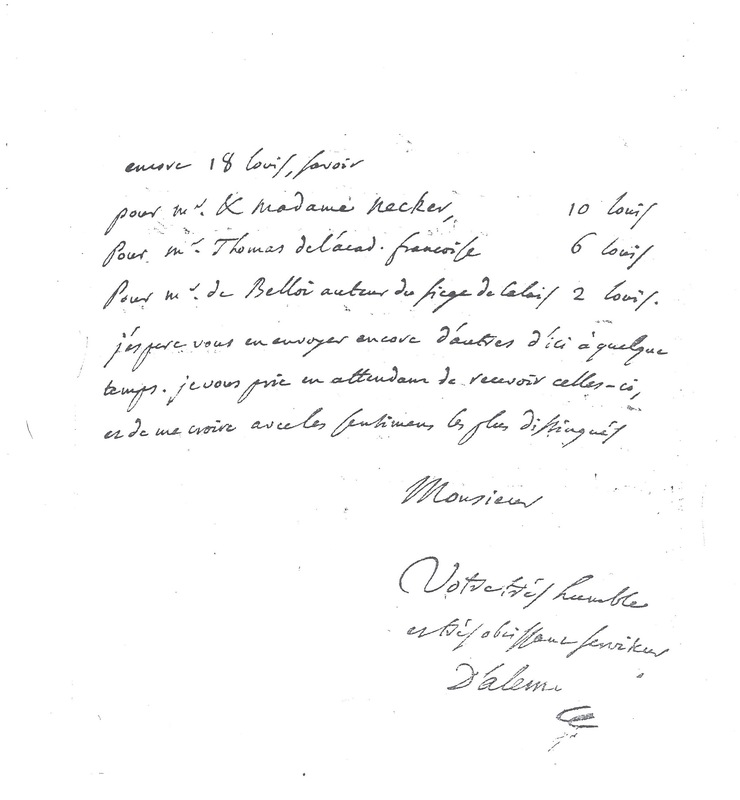 encore 18 louis, savoir
pour mr. & madame necker, 10 louis
Pour mr. Thomas de l'acad. françoise 6 louis
Pour mr. de Belloi auteur du siege de Calais 2 louis.
j'espere vous en envoyer encore d'autres d'ici à quelque
temps. je vous prie en attendant de recevoir celles-ci,
et de me croire avec les sentimens les plus distingués
Monsieur
Votre très humble
et très obeissant serviteur
D'alem